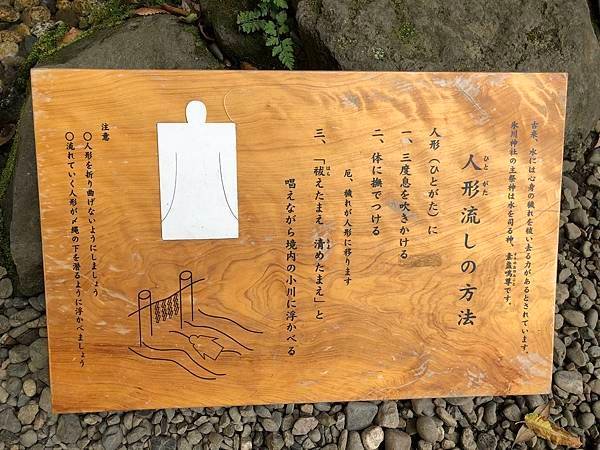 古来、水には心身の穢れを祓い去る力があるとされています。
氷川神社の主祭神は水を司る神、素盞嗚尊です。
人形流しの方法
ひと がた
人形（ひとがた）に
一、三度息を吹きかける
二、体に撫でつける
厄、穢れが人形に移ります
三、「祓えたまえ 清めたまえ」と
唱えながら境内の小川に浮かべる
注意
〇人形を折り曲げないようにしましょう
〇流れていく人形が〆縄の下を潜るように浮かべましょう